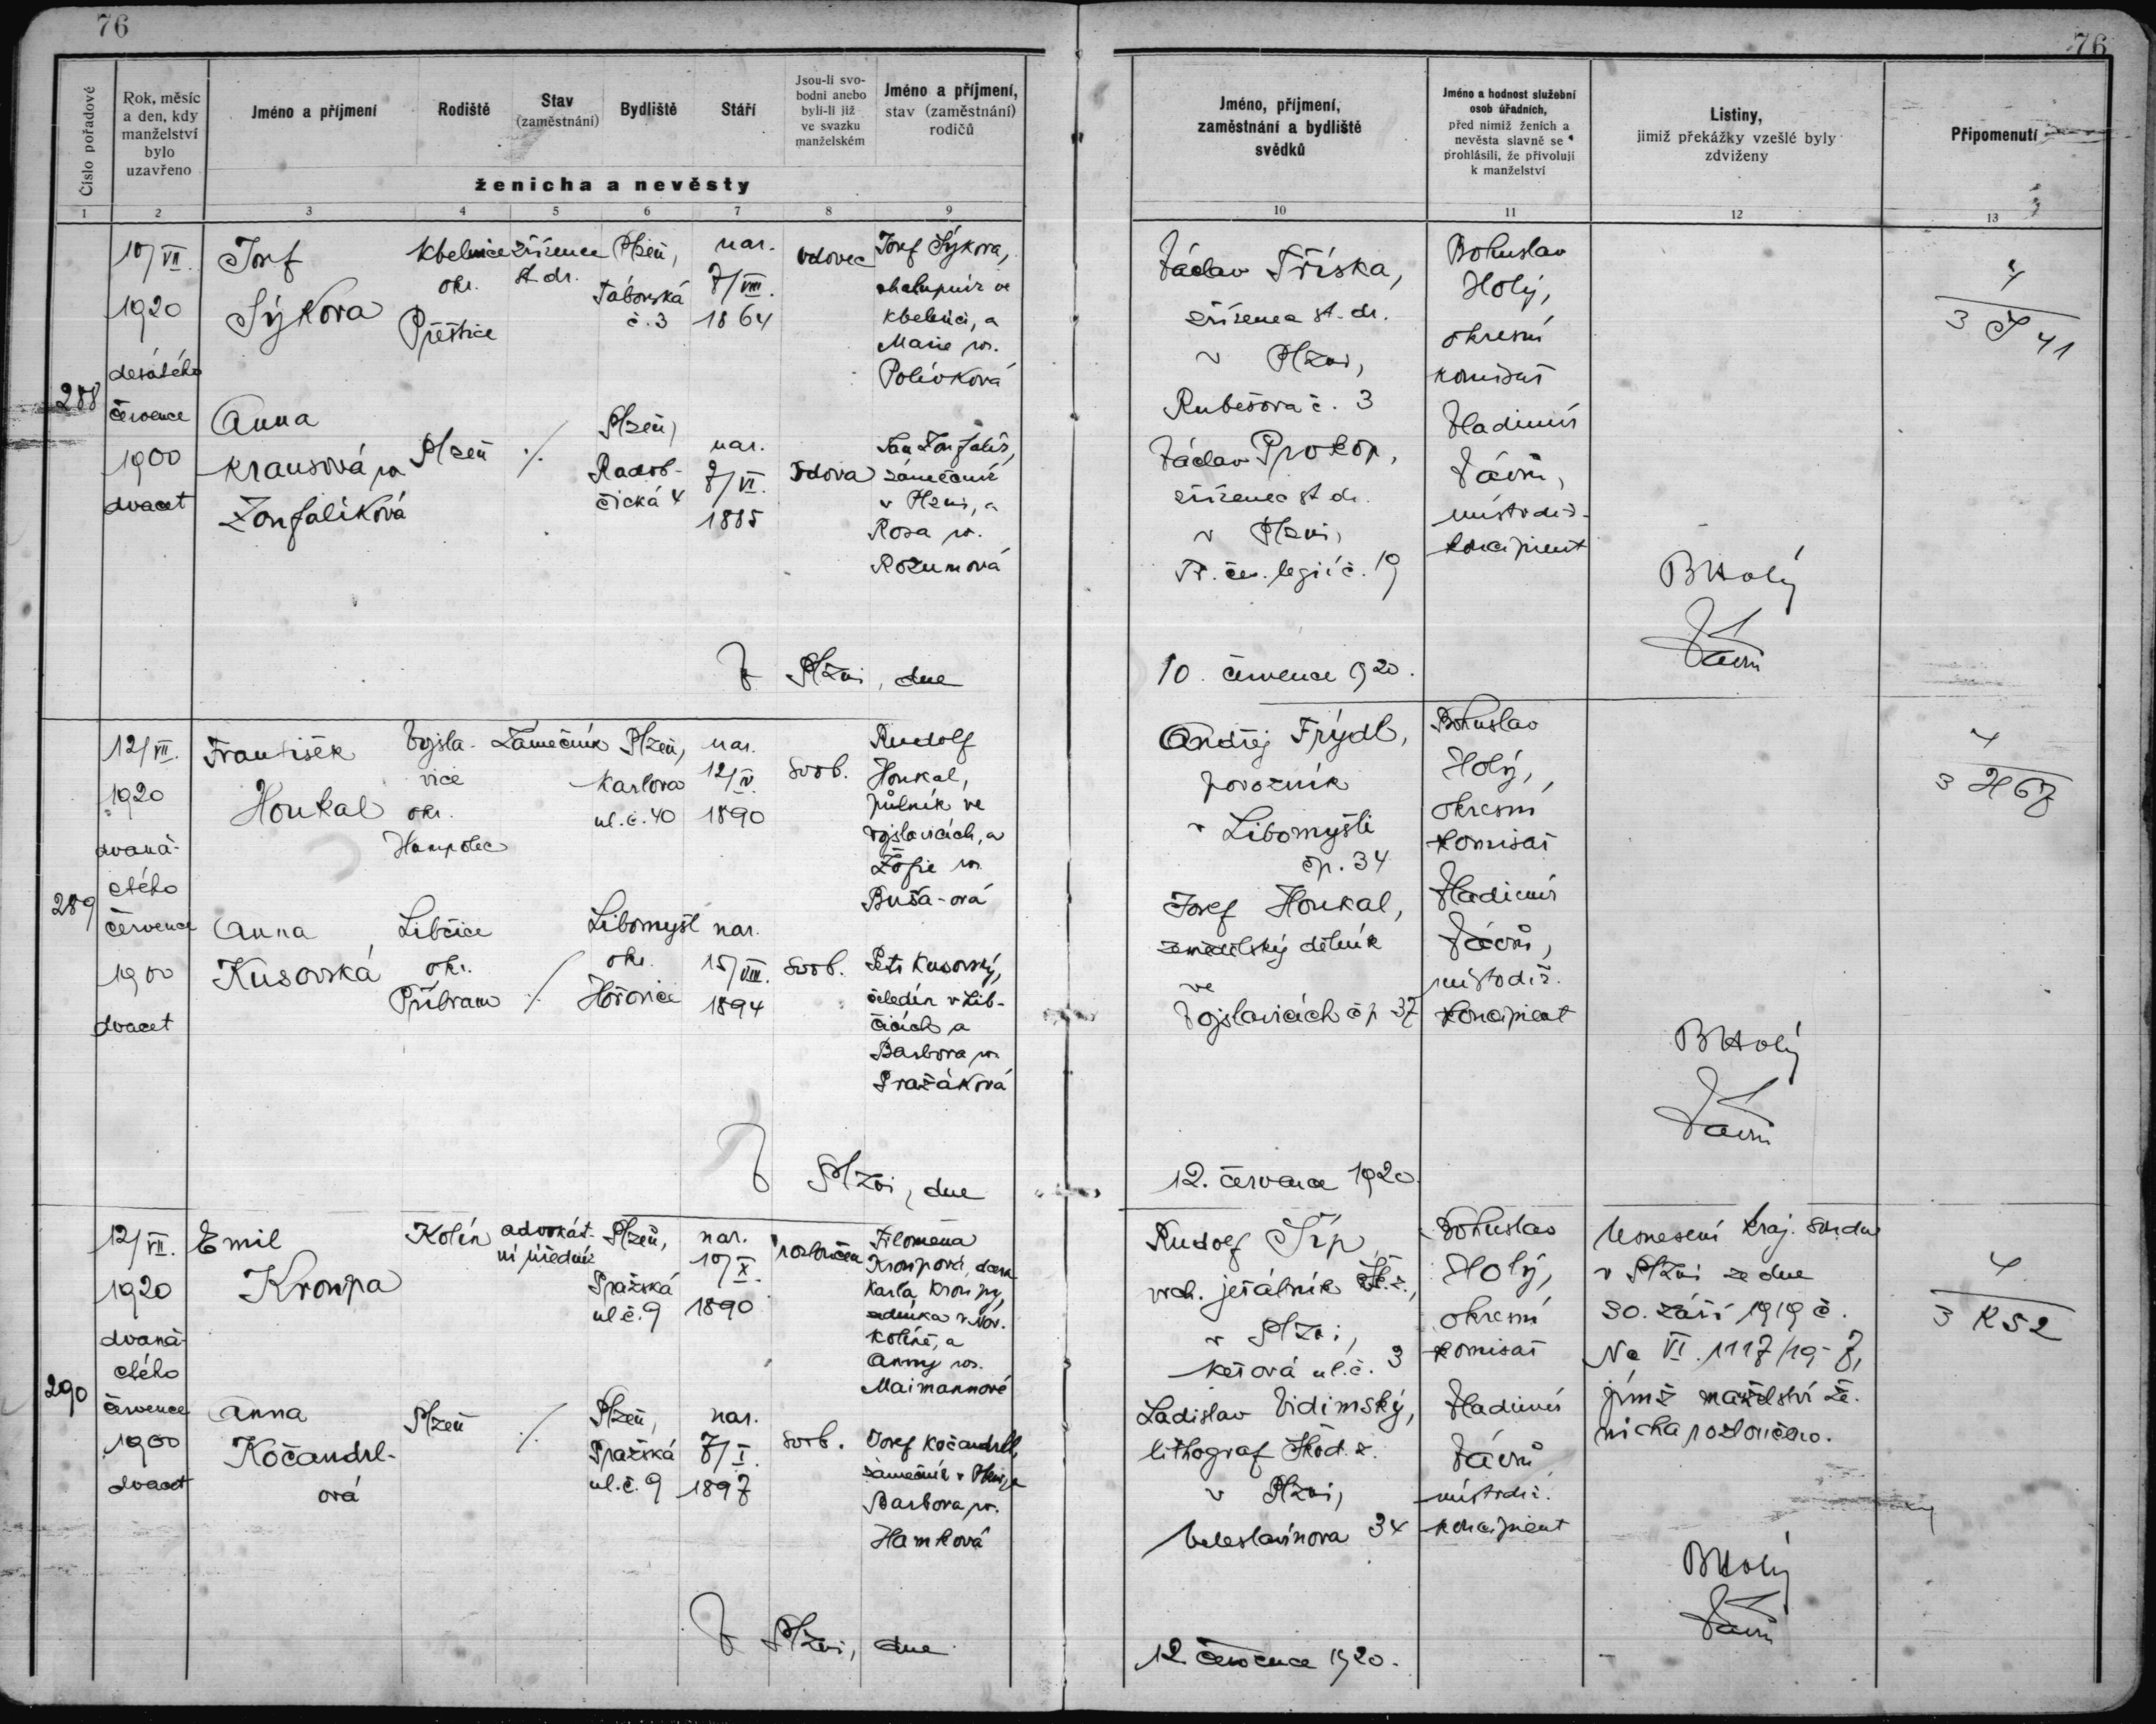 76
76
Číslo pořadové
Rok, měsíc
a den, kdy
manželství
bylo
uzavřeno
Jméno a příjmení
Rodiště
Stav
(zaměstnání)
Bydliště
Stáří
Jsou-li svo-
bodni anebo
byli-li již
ve svazku
manželském
Jméno a příjmení,
stav (zaměstnání)
rodičů
ženicha a nevěsty
Jméno, příjmení,
zaměstnání a bydliště
svědků
Jméno a hodnost služební
osob úřadních,
před nimiž ženich a
nevěsta slavně se
prohlásili, že přivolují
k manželství
Listiny,
jimiž překážky vzešlé byly
zdviženy
Připomenutí
1 2 3 4 5 6 7 8 9 10 11 12 13
288
10/VII.
1920
desátého
července
1900
dvacet
Josef
Sýkora
Kbelnice
okr.
Přeštice
zřízenec
st. dr.
Plzeň,
Táborská
č. 3
nar.
7/VIII.
1864
vdovec
Josef Sýkora,
chalupník ve
Kbelnici, a
Marie roz.
Polívková
Anna
Krausová roz.
Žonfaliková
Plzeň
./.
Plzeň,
Radob-
čická 4
nar.
7/VI.
1885
vdova
Jan Žonfalík,
zámečník
v Plzni, a
Rosa roz.
Rozumová
Václav Tříska,
zřízenec st. dr.
v Plzni,
Rubešova č. 3
Václav Prokop,
zřízenec st. dr.
v Plzni,
Tř. čes. legií č. 19
Bohuslav
Holý,
okresní
komisař
Vladimír
Vávrů,
místodrž.
koncipient
BHolý
Vávrů
4
3 S 41
V Plzni, dne
10. července 1920.
289
12/VII.
1920
dvaná-
ctého
července
1900
dvacet
František
Houkal
Vojsla-
vice
okr.
Humpolec
Zámečník
Plzeň,
Karlova
ul. č. 40
nar.
12/IV.
1890
svob.
Rudolf
Houkal,
půlník ve
Vojslavicích, a
Žofie roz.
Buša-ová
Anna
Kusovská
Libčice
okr.
Příbram
./.
Libomyšl
okr.
Hořovice
nar.
15/VIII.
1894
svob.
Petr Kusovský,
čeledín v Lib-
čicích a
Barbora roz.
Pražáková
Ondřej Frýdl,
povozník
v Libomyšli
čp. 34
Josef Houkal,
zemědělský dělník
ve
Vojslavicích čp. 37
Bohuslav
Holý,
okresní
komisař
Vladimír
Vávrů,
místodrž.
koncipient
BHolý
Vávrů
4
3 H 67
V Plzni, dne
12. července 1920.
290
12/VII.
1920
dvaná-
ctého
července
1900
dvacet
Emil
Kroupa
Kolín
advokát-
ní úředník
Plzeň,
Pražská
ul č. 9
nar.
10/X.
1890
rozloučen
Filomena
Kroupová, dcera
Karla Kroupy,
v Nov.
Kolíně, a
Anny roz.
Maimannové
Anna
Kočandrl-
ová
Plzeň
./.
Plzeň,
Pražská
ul. č. 9
nar.
7/I.
1897
svob.
Josef Kočandrle,
zámečník v Plzni, a
Barbora roz.
Hamková
Rudolf Šíp,
vrch. jeřábník Šk. z.,
v Plzni,
Keřová ul. č. 3
Ladislav Vidimský,
lithograf Škod. z.
v Plzni,
Veleslavínova 34
Bohuslav
Holý,
okresní
komisař
Vladimír
Vávrů
místodrž.
koncipient
Usnesení kraj. soudu
v Plzni ze dne
30. září 1919 č.
Nc VI. 1117/19-7,
jímž manželství že-
nicha rozloučeno.
BHolý
Vávrů
4
3 K 52
V Plzni, dne
12. července 1920.